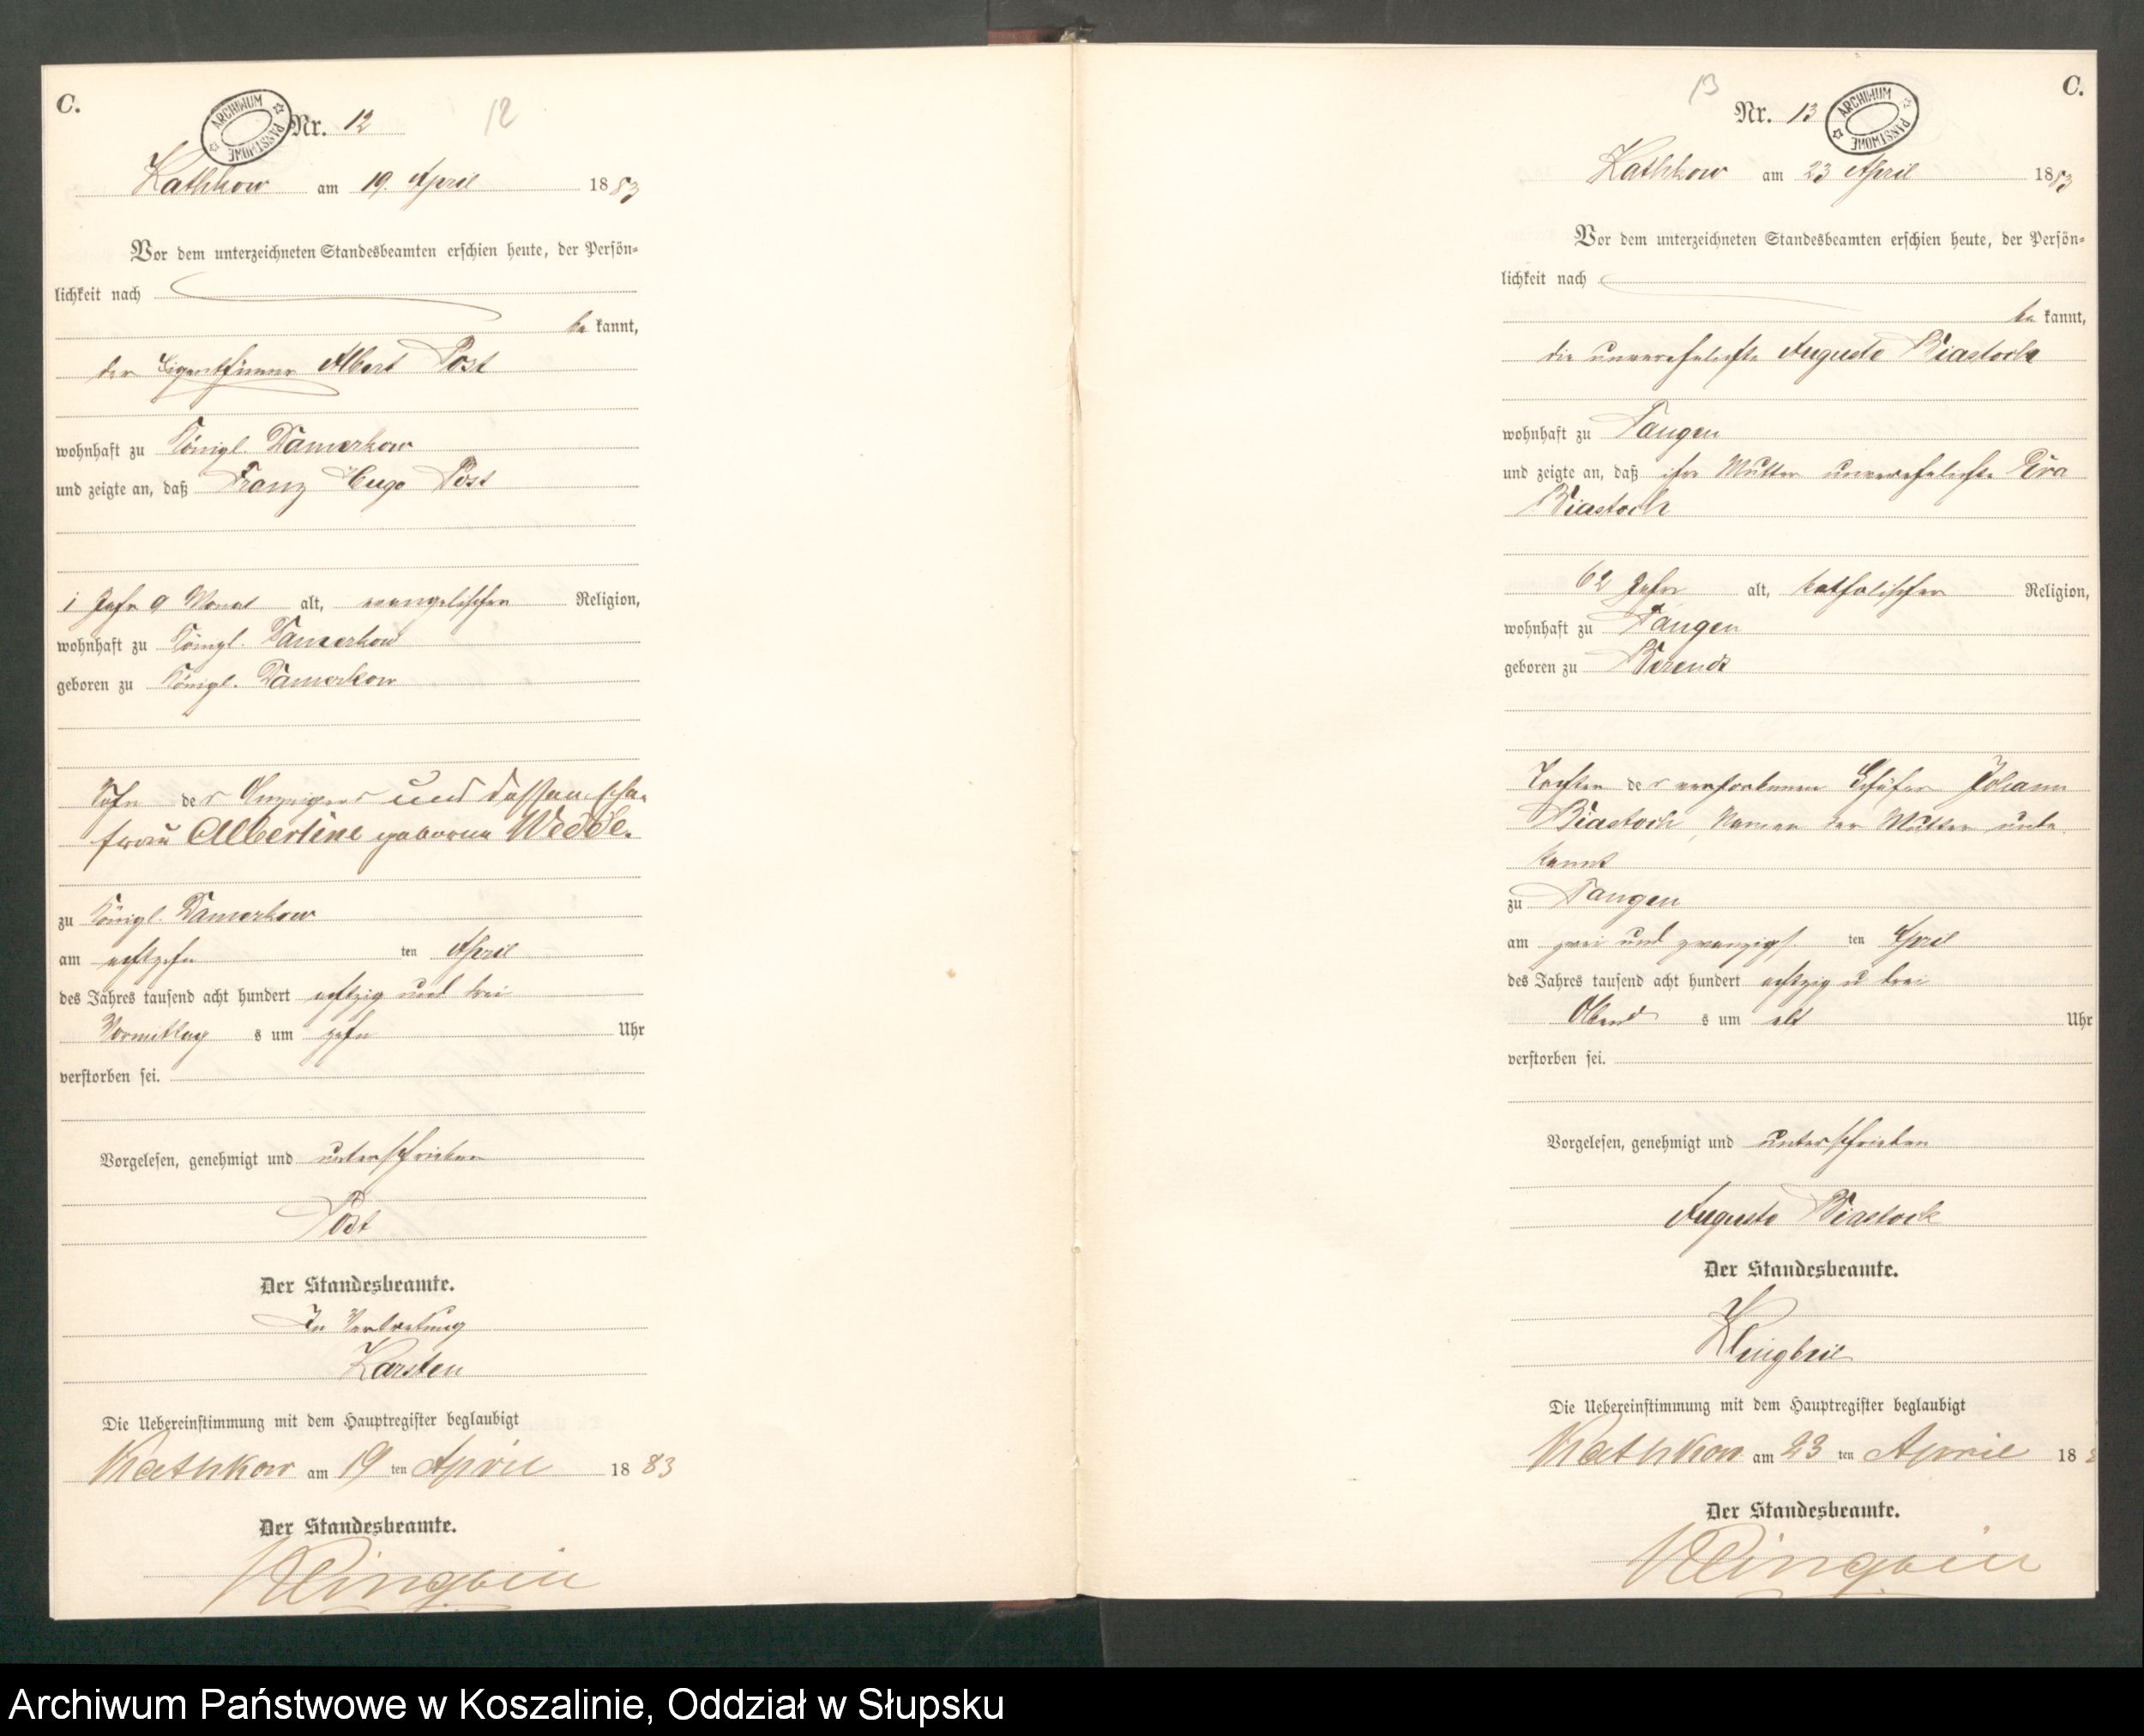 C.
ARCHIWUM PAŃSTWOWE
Nr. 12
12
Kathkow am 19. April 1883
Vor dem unterzeichneten Standesbeamten erschien heute, der Persön=
lichkeit nach
be kannt,
der Eigenthümer Albert Post
wohnhaft zu Königl. Damerkow
und zeigte an, daß Franz Hugo Post
1 Jahr 9 Monat alt, evangelischer Religion,
wohnhaft zu Königl. Damerkow
geboren zu Königl. Damerkow
Sohn des Anzeigers und dessen Ehe-
frau Albertine geborene Wedde.
zu Königl. Damerkow
am achtzehn ten April
des Jahres tausend acht hundert achtzig und drei
Vormittag s um zehn Uhr
verstorben sei.
Vorgelesen, genehmigt und unterschrieben
Post
Der Standesbeamte.
In Vertretung
Karsten
Die Uebereinstimmung mit dem Hauptregister beglaubigt
Kathkow am 19 ten April 1883
Der Standesbeamte.
Klingbeil
C.
13
Nr. 13
ARCHIWUM PAŃSTWOWE
Kathkow am 23 April 1883
Vor dem unterzeichneten Standesbeamten erschien heute, der Persön=
lichkeit nach
be kannt,
die unverehelichte Auguste Biastock
wohnhaft zu Tangen
und zeigte an, daß ihre Mutter unverehelichte Eva
Biastoch
62 Jahr alt, katholischer Religion,
wohnhaft zu Tangen
geboren zu Berendt
Tochter des verstorbenen Schäfer Johann
Biastoch, Namen der Mutter unbe
kannt
zu Tangen
am zwei und zwanzigs. ten April
des Jahres tausend acht hundert achtzig u drei
Abend s um elf Uhr
verstorben sei.
Vorgelesen, genehmigt und unterschrieben
Auguste Biastock
Der Standesbeamte.
Klingbeil
Die Uebereinstimmung mit dem Hauptregister beglaubigt
Kathkow am 23 ten April 188
Der Standesbeamte.
Klingbeil
Archiwum Państwowe w Koszalinie, Oddział w Słupsku